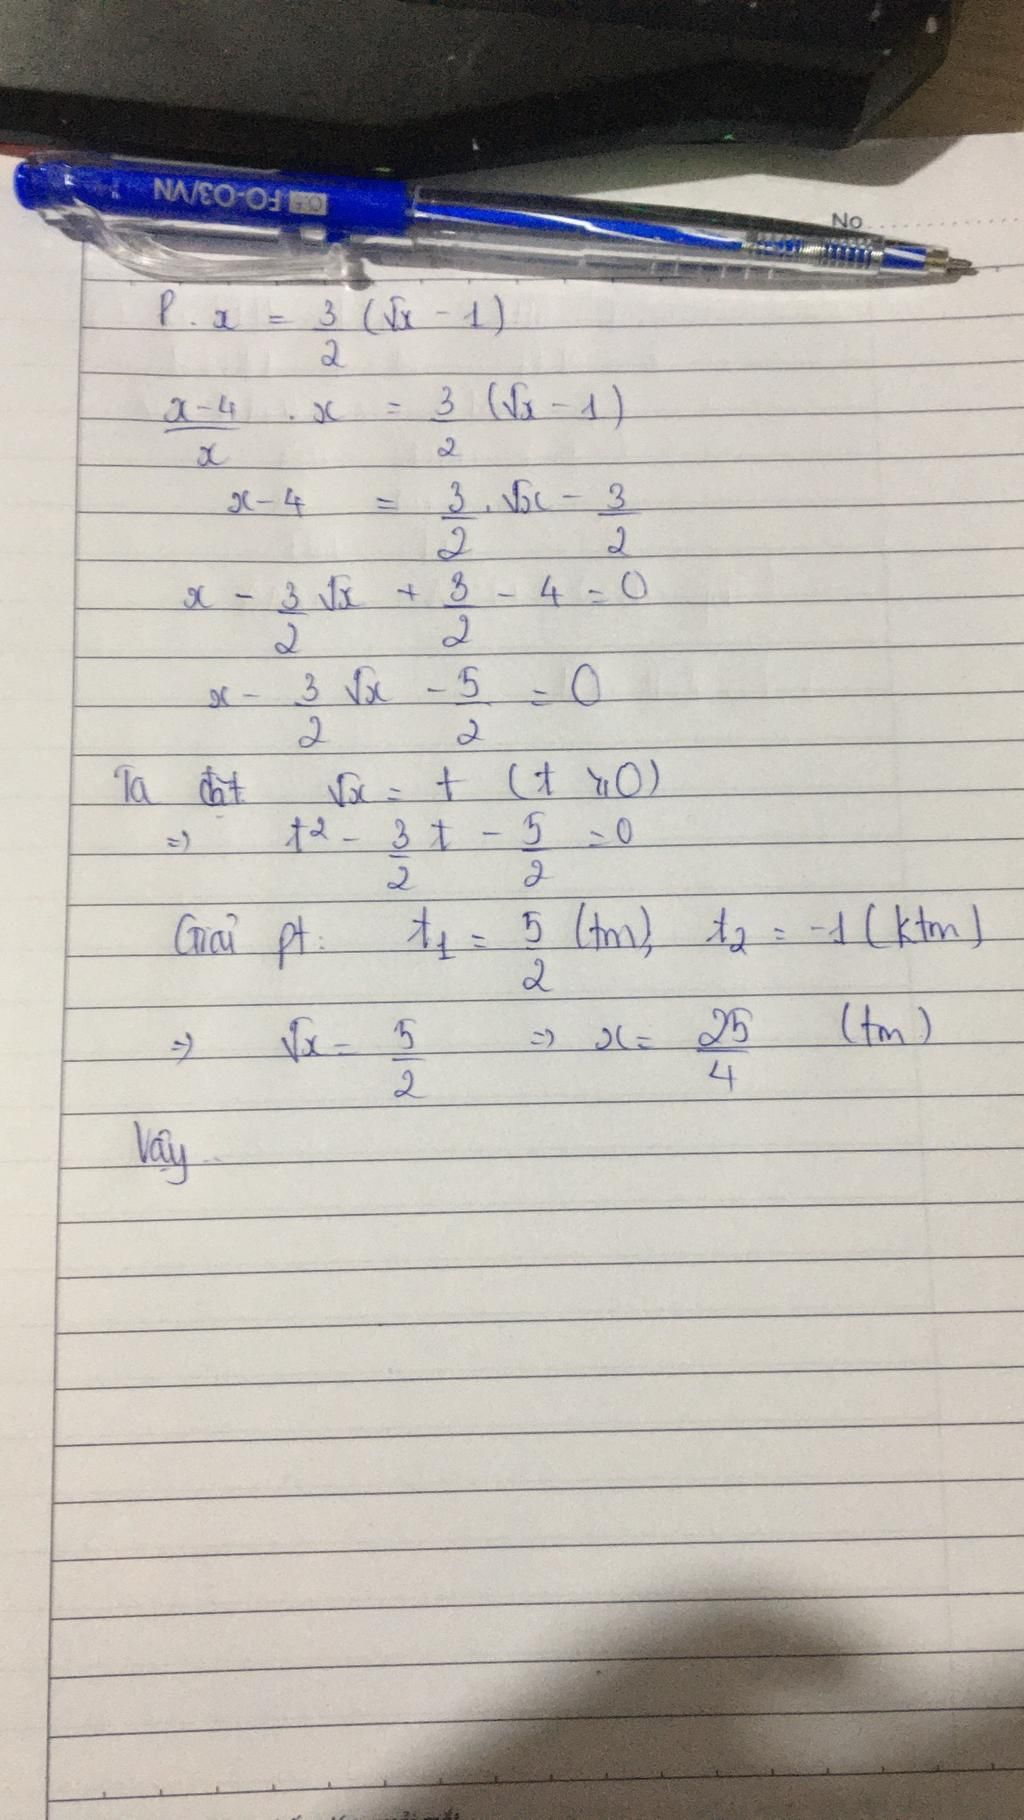 0.5 FO-03/VN
No
P . x = 3/2 (√x - 1)
x-4/x . x = 3/2 (√x - 1)
x-4 = 3/2 . √x - 3/2
x - 3/2 √x + 3/2 - 4 = 0
x - 3/2 √x - 5/2 = 0
Ta đặt √x = t (t ≥ 0)
=> t² - 3/2 t - 5/2 = 0
Giải pt: t₁ = 5/2 (tm), t₂ = -1 (ktm)
=> √x = 5/2 => x = 25/4 (tm)
Vậy ..